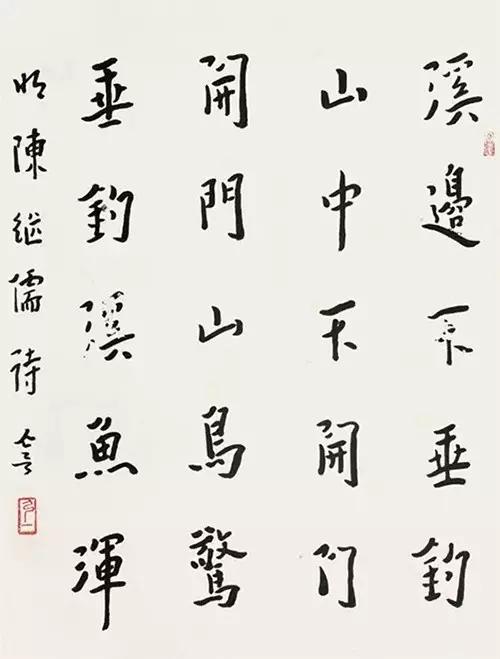 溪邊不垂釣
山中不開门
開門山鳥驚
垂釣溪魚渾
明陳継儒詩